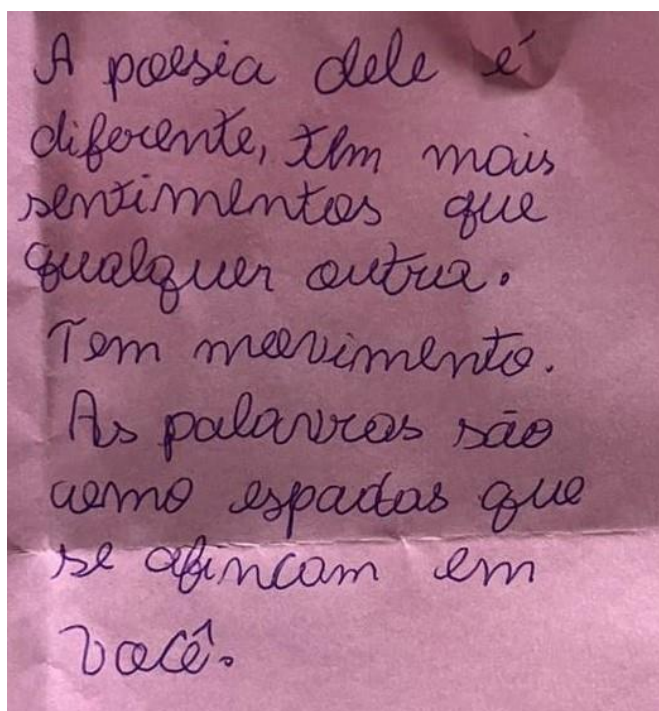 A poesia dele é
diferente, tem mais
sentimentos que
qualquer outra.
Tem movimento.
As palavras são
como espadas que
se afincam em
você.